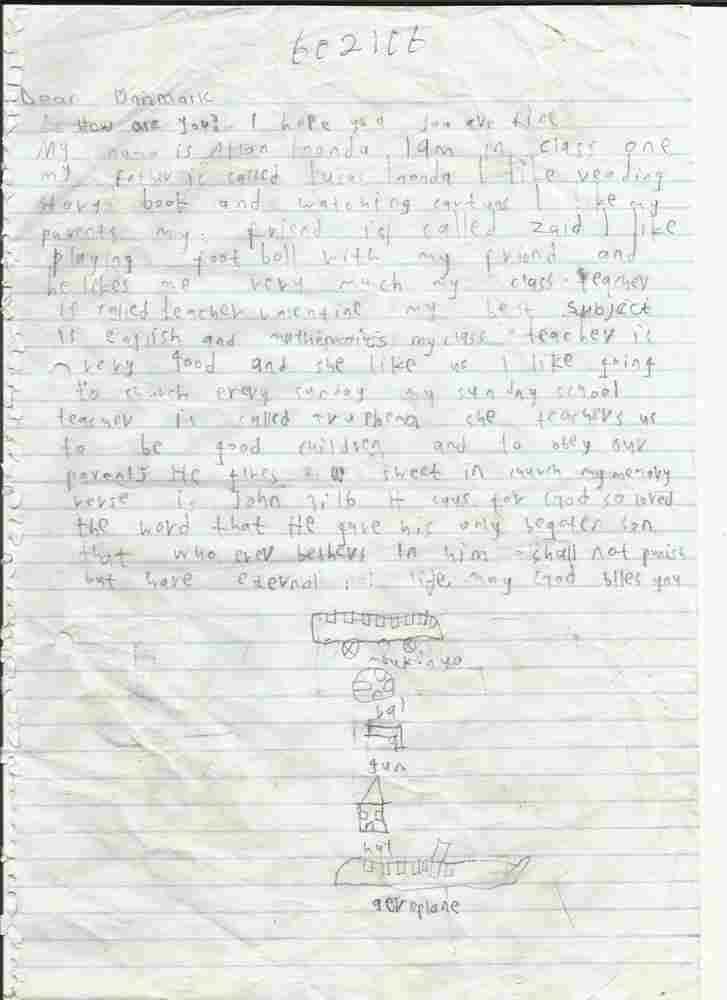 Dear Danmark
How are you? I hope you you are fine
My name is Allan I am in class one
my father is called I like reading
story book and watching I like my
parents my friend is called Zaid I like
playing foot boll with my friend and
he likes me very much my class teacher
is called teacher valentine my best subject
is english and my class teacher is
very good and she like us I like going
to church every sunday my sunday school
teacher is called she teachers us
to be good children and to obey our
parents He gives us sweet in church my memory
verse is John 3:16 it says for God so loved
the word that He gave his only son
that who ever in him shall not
but have life may God you
bal
gun
hut
aeroplane